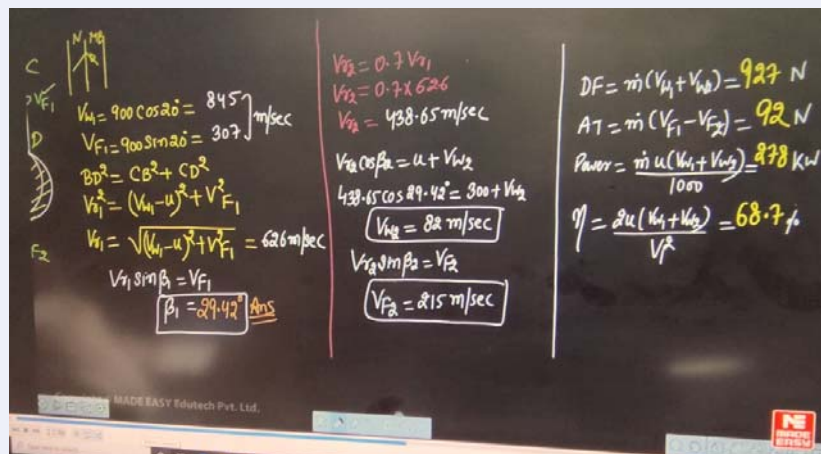 N MB
C
VF1
Vw1 = 900 cos20° = 845
VF1 = 900 sin20° = 307 m/sec
D
BD² = CB² + CD²
Vr1² = (Vw1-u)² + V²F1
F2
Vr1 = √(Vw1-u)² + V²F1 = 626 m/sec
Vr1 sinβ1 = VF1
β1 = 29.42° Ans
Vr2 = 0.7 Vr1
Vr2 = 0.7×626
Vr2 = 438.65 m/sec
Vr2 cosβ2 = u + Vw2
438.65 cos 29.42° = 300 + Vw2
Vw2 = 82 m/sec
Vr2 sinβ2 = VF2
VF2 = 215 m/sec
DF = ṁ(Vw1+Vw2) = 927 N
AT = ṁ(VF1-VF2) = 92 N
Power = ṁ u(Vw1+Vw2)/1000 = 278 KW
η = 2u(Vw1+Vw2)/V1² = 68.7 %
MADE EASY Edutech Pvt. Ltd.
ME
MADE
EASY